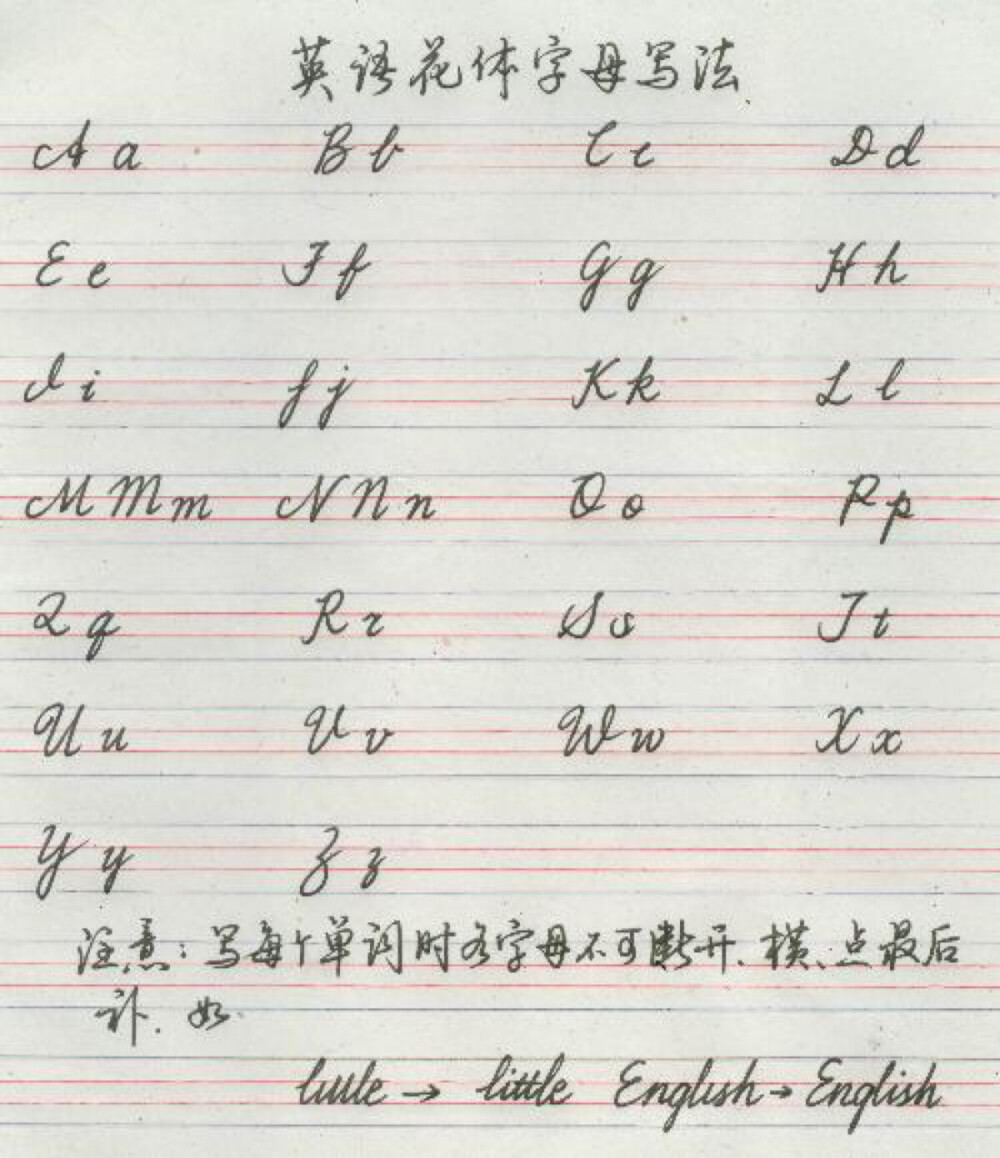 英语花体字母写法
A a B b C c D d
E e F f G g H h
I i J j K k L l
M M m N N n O o P p
Q q R r S s T t
U u V v W w X x
Y y Z z
注意:写每个单词时各字母不可断开、横、点最后
补. 如
little → little English → English